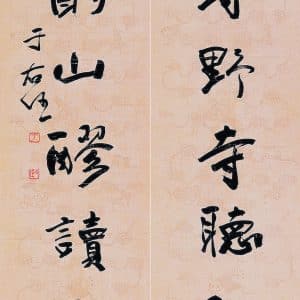 野寺聽
山醪讀
于右任